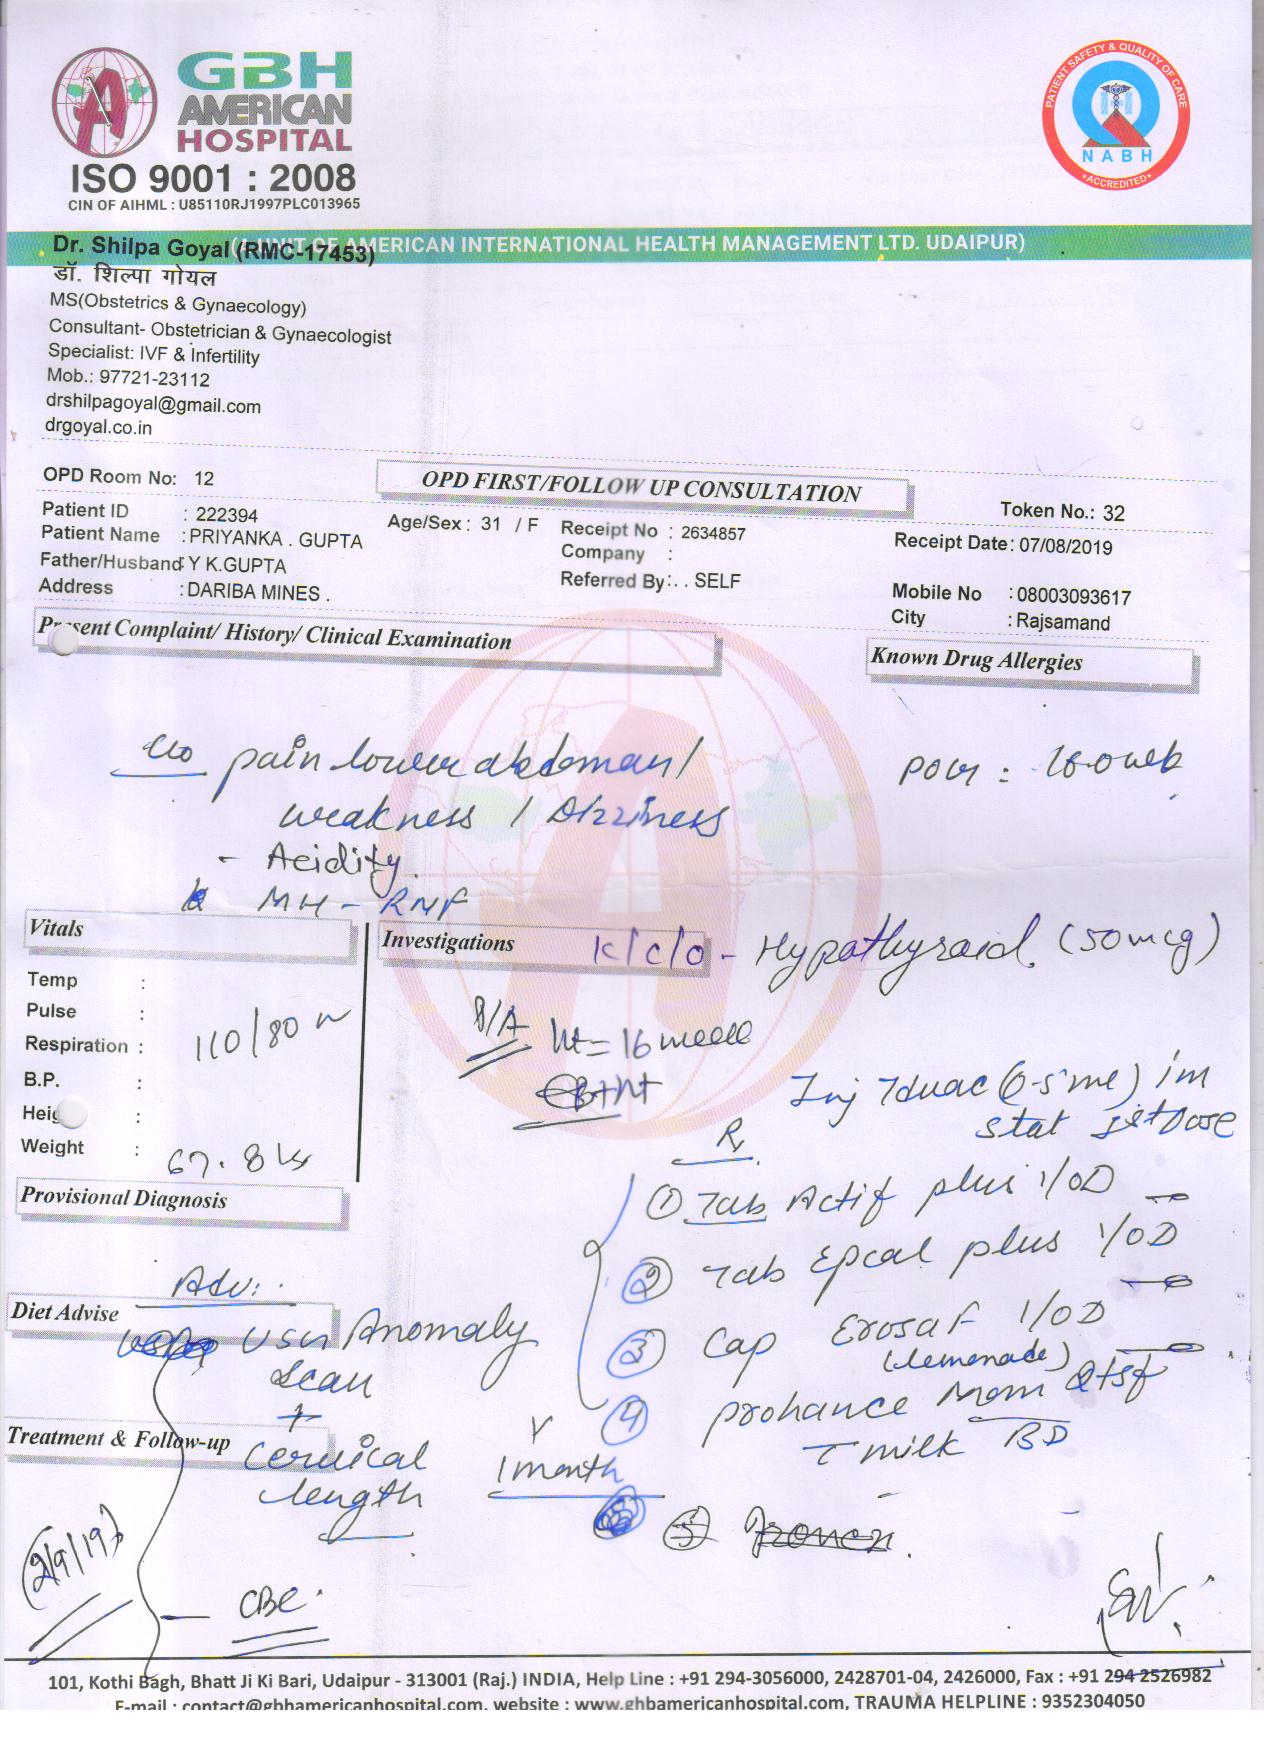 GBH
AMERICAN
HOSPITAL
ISO 9001 : 2008
CIN OF AIHML : U85110RJ1997PLC013965
PATIENT SAFETY & QUALITY OF CARE
NABH
ACCREDITED
(A UNIT OF AMERICAN INTERNATIONAL HEALTH MANAGEMENT LTD. UDAIPUR)
Dr. Shilpa Goyal (RMC-17453)
डॉ. शिल्पा गोयल
MS(Obstetrics & Gynaecology)
Consultant- Obstetrician & Gynaecologist
Specialist: IVF & Infertility
Mob.: 97721-23112
drshilpagoyal@gmail.com
drgoyal.co.in
OPD Room No: 12
OPD FIRST/FOLLOW UP CONSULTATION
Token No.: 32
Patient ID : 222394
Age/Sex : 31 / F
Receipt No : 2634857
Receipt Date: 07/08/2019
Patient Name :PRIYANKA . GUPTA
Company :
Father/Husband: Y K.GUPTA
Referred By: . . SELF
Mobile No :08003093617
Address :DARIBA MINES .
City : Rajsamand
Present Complaint/ History/ Clinical Examination
Known Drug Allergies
c/o pain lower abdoman/
POG : 16.0 week
weakness / Dizziness
- Acidity.
MH - RMF
Vitals
Investigations
K/C/O - Hypothyroid (50mcg)
Temp :
Pulse :
Respiration :
110/80
B.P. :
Height :
Weight : 67.8 kg
P/A Ht = 16 week
Inj Tdvac (0.5 ml) im
stat 1st Dose
R
Provisional Diagnosis
① Tab Actif plus 1/OD
② Tab Epcal plus 1/OD
③ Cap Erosaf 1/OD
(lemonade)
④ prohance Mom 2tsf
c milk BD
⑤
Adv:
Diet Advise
USG Anomaly
scan
+
Treatment & Follow-up
cervical
length
1 month
2/9/19
- CBC
101, Kothi Bagh, Bhatt Ji Ki Bari, Udaipur - 313001 (Raj.) INDIA, Help Line : +91 294-3056000, 2428701-04, 2426000, Fax : +91 294-2526982
E-mail : contact@gbhamericanhospital.com, website : www.ghbamericanhospital.com, TRAUMA HELPLINE : 9352304050